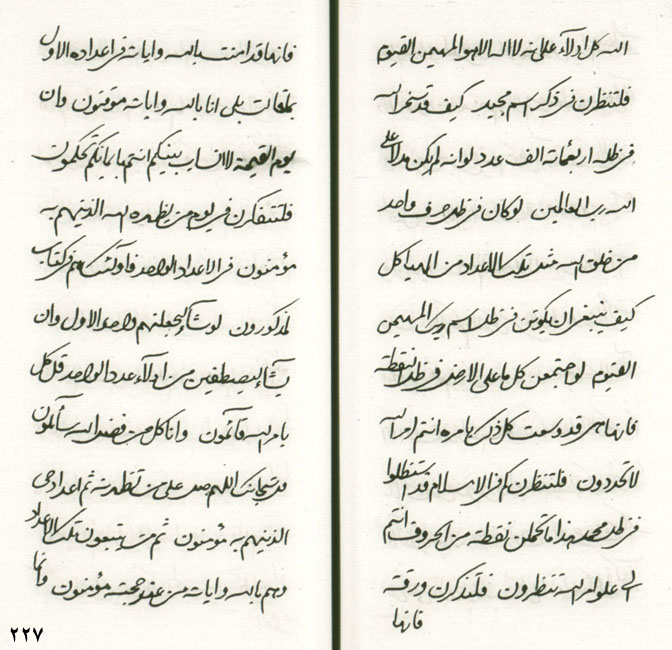 الله كل ادلآء على انه لا اله الا هو المهيمن القيوم
فلتنظرن فى ذكر اسم مجيد كيف قد سخر الله
فى ظله اربعمائة الف عدد لو انه لم يكن هذا على
الله رب العالمين لو كان فى ظله حرف واحد
من خلق الله مثل تلك الاعداد من الهياكل
كيف ينبغى ان يكونن فى ظل اسم ربك المهيمن
القيوم لو اجتمعن كل ما على الارض فى ظل النقطة
فانها هى قد وسعت كل ذلك بامره انتم امر الله
لا تحددون فلتنظرن كم فى الاسلام قد استظلوا
فى ظل محمد هذا ما تحملن نقطة من الحروف انتم
الى علو امر الله تنظرون فلتذكرن ورقة
فانها
فانها قد امنت بالله واياته فى اعداده الاول
بما قالت بلى انا بالله واياته مؤمنون وان
يوم القيمة لا انساب بينكم انتم بايمانكم تحكمون
فلتتفكرن فى يوم من يظهره الله الذينهم به
مؤمنون فى الاعداد الواحد فاولئك هم فى كتاب
لمذكورون لو شآء ليجعلنهم واحد الاول وان
يشآء ليصطفين من ادلآء عدد الواحد قل كل
بامر الله قآئمون وانا كل من فضل الله سآئلون
قل سبحانك اللهم صل على من تظهرنه ثم اعداد حى
الذينهم به مؤمنون ثم من يتبعون تلك الاعداد
وهم بالله واياته من عنده حجته مؤمنون وانما
٢٢٧